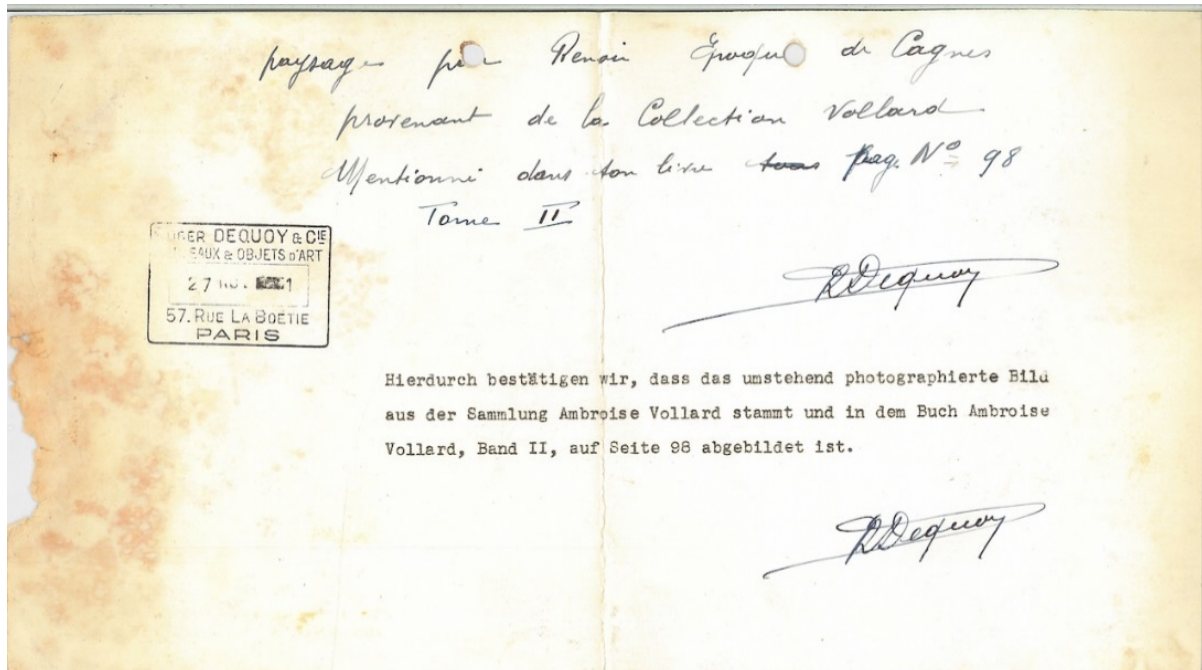 paysage par Renoir Époque de Cagnes
provenant de la Collection Vollard
Mentionné dans son livre pag. Nº 98
Tome II
DEQUOY & CIE
& OBJETS D'ART
27
57. RUE LA BOETIE
PARIS
RDequoy
Hierdurch bestätigen wir, dass das umstehend photographierte Bild
aus der Sammlung Ambroise Vollard stammt und in dem Buch Ambroise
Vollard, Band II, auf Seite 98 abgebildet ist.
RDequoy